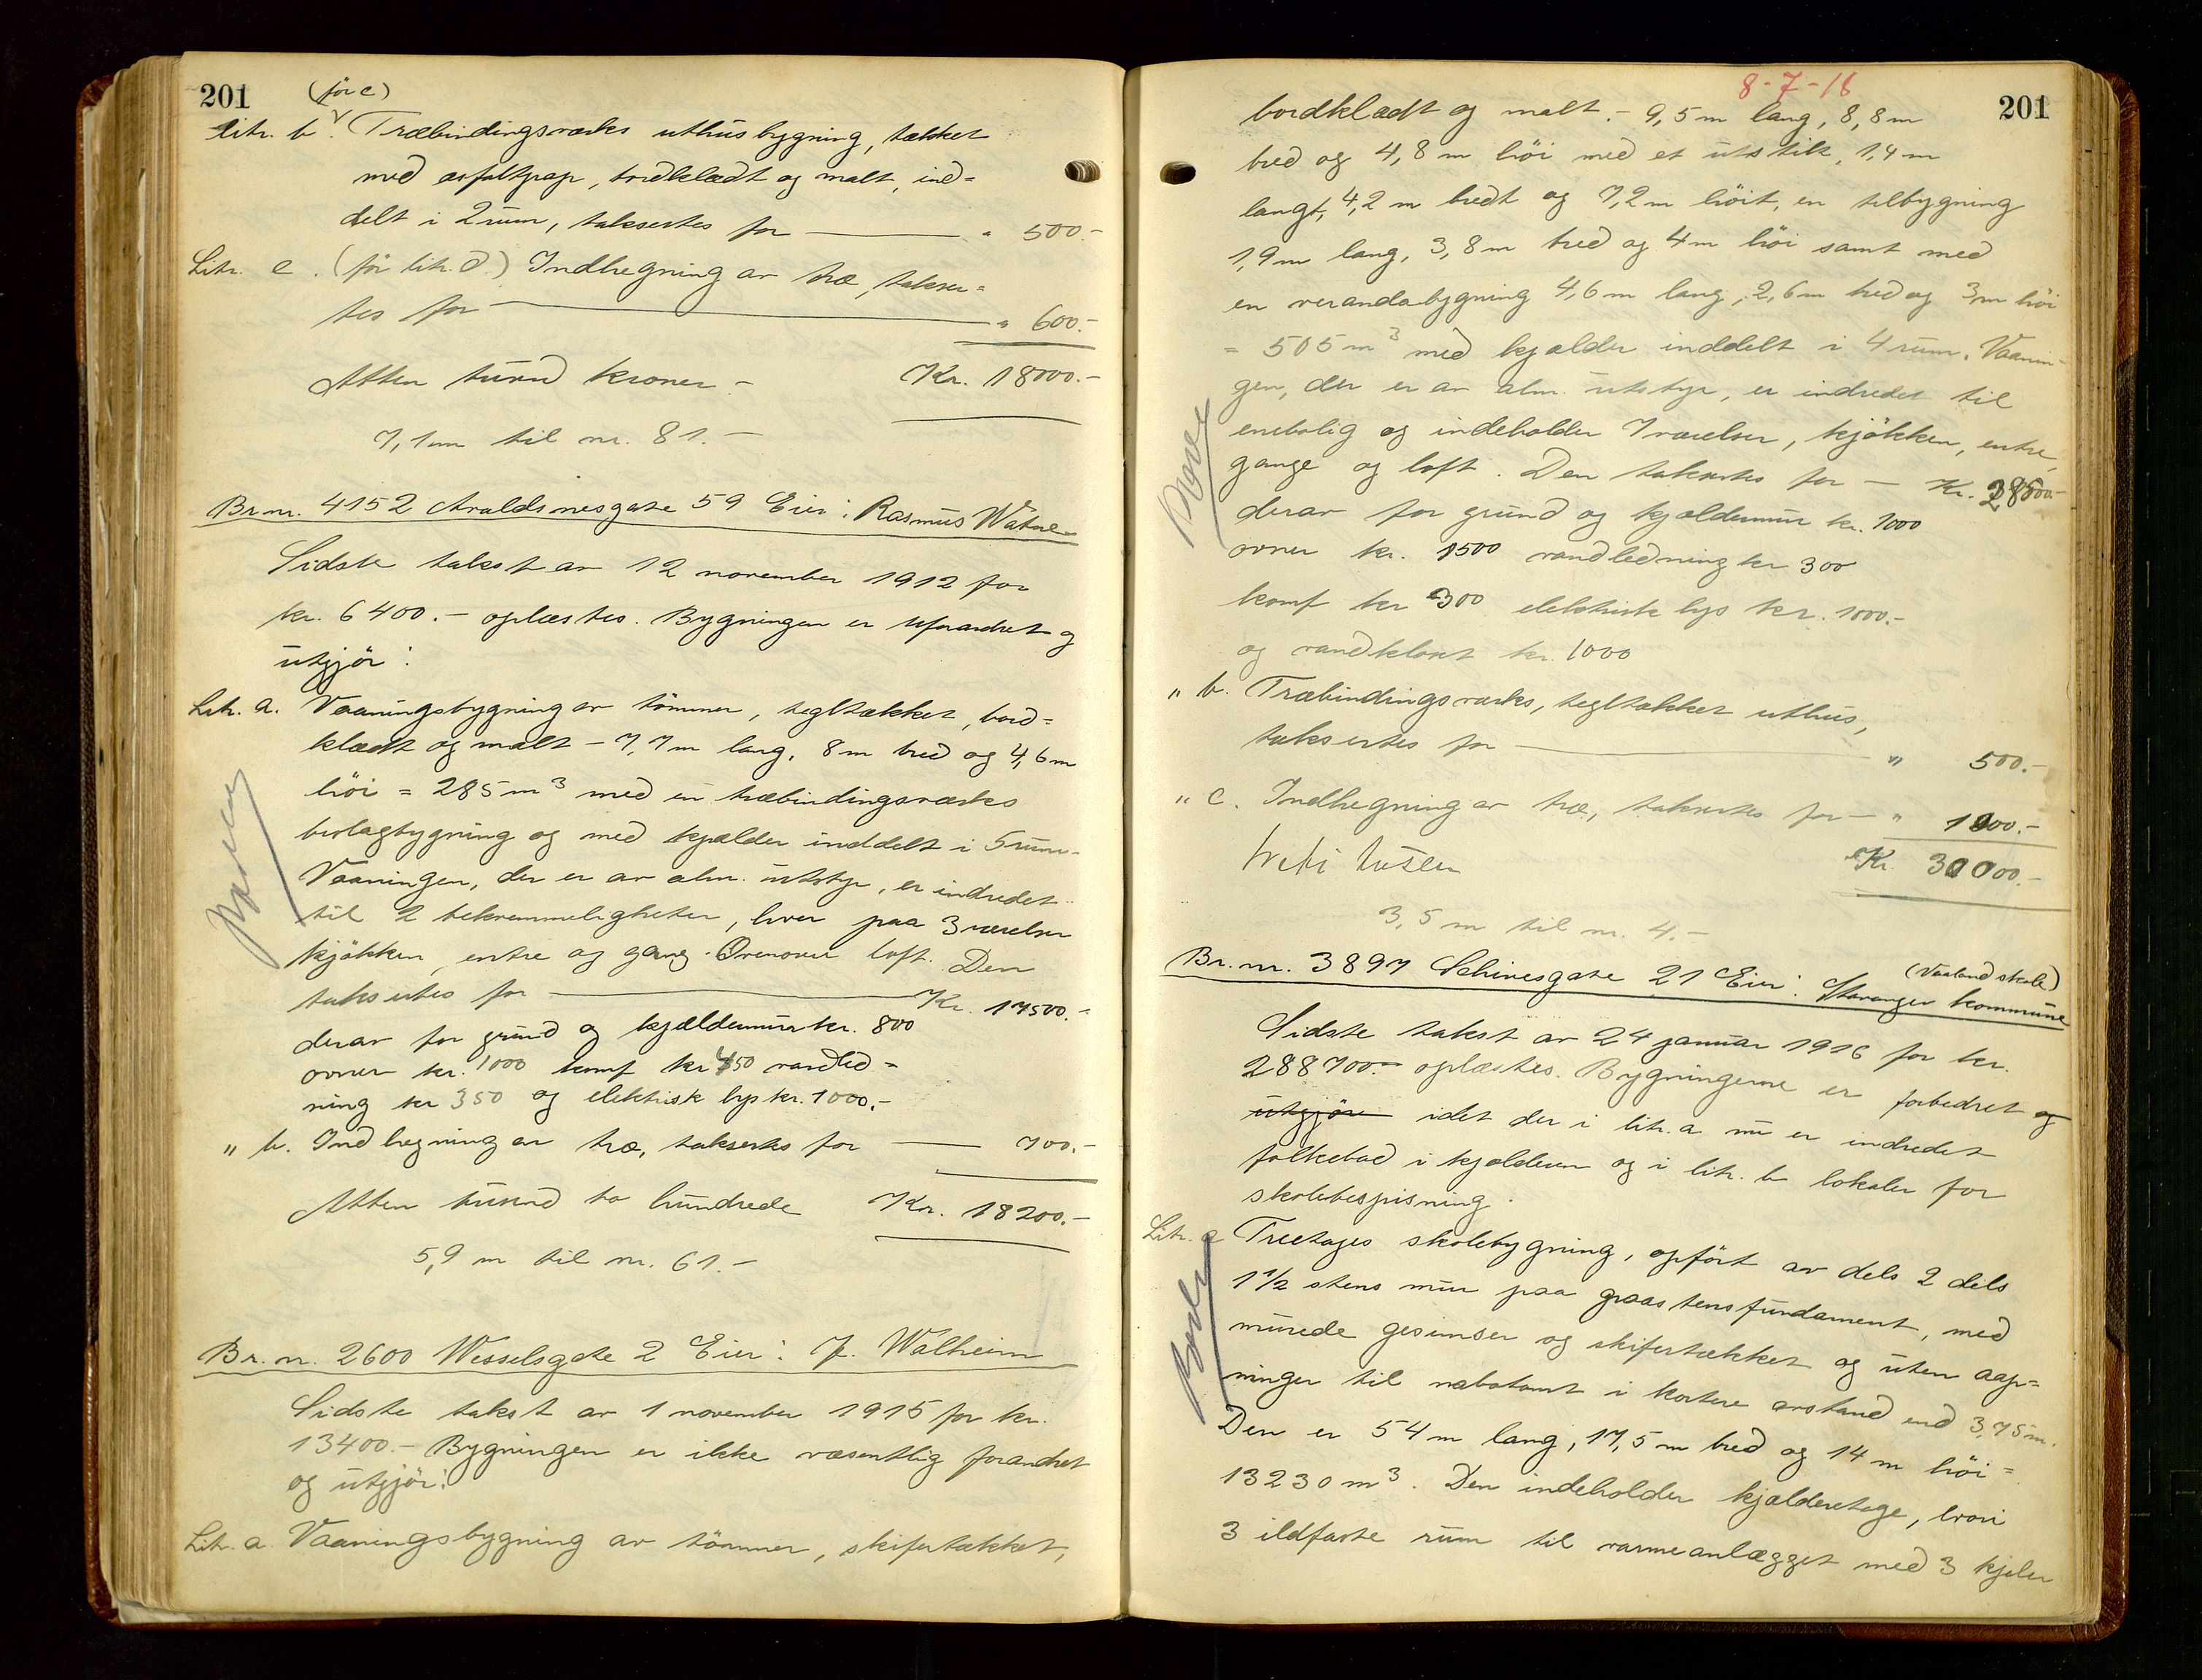 201
(för c)
Litr. b. Træbindingsværks uthusbygning, tækket
med asfaltpap, bordklædt og malt, ind=
delt i 2 rum, taksertes for — " 500.-
Litr. e. (för litr. d.) Indhegning av træ, takser=
tes for — " 600.-
Atten tusind kroner - Kr. 18000.-
7,1 m til nr. 81.-
Br. nr. 4152 Avaldsnesgate 59 Eier: Rasmus Watne
Sidste takst av 12 november 1912 for
kr. 6400.- oplæstes. Bygningen er uforandret og
utgjör:
Litr. a. Vaaningsbygning av tömmer, tegltækket, bord=
klædt og malt - 7,7 m lang, 8 m bred og 4,6 m
höi = 285 m³ med en træbindingsværks
bislagbygning og med kjælder inddelt i 5 rum.
Vaaningen, der er av alm. utstyr, er indredet
til 2 bekvemmeligheter, hver paa 3 værelser
kjökken, entre og gang. Ovenover loft. Den
taksertes for — Kr. 17500.-
derav for grund og kjældermur kr. 800
ovner kr. 1000 komf kr 450 vandled=
ning kr 350 og elektrisk lys kr. 1000.-
" b. Indhegning av træ, taksertes for — 700.-
Atten tusind to hundrede Kr. 18200.-
5,9 m til nr. 61.-
Br. nr. 2600 Wesselsgate 2 Eier: J. Walheim
Sidste takst av 1 november 1915 for kr.
13400.- Bygningen er ikke væsentlig forandret
og utgjör:
Litr. a. Vaaningsbygning av tömmer, skifertækket,
8-7-18
201
bordklædt og malt.- 9,5 m lang, 8,8 m
bred og 4,8 m höi med et utstik, 1,4 m
langt, 4,2 m bredt og 7,2 m höit, en tilbygning
1,9 m lang, 3,8 m bred og 4 m höi samt med
en verandabygning 4,6 m lang, 2,6 m bred og 3 m höi
= 505 m³ med kjælder inddelt i 4 rum. Vaanin-
gen, der er av alm. utstyr, er indredet til
enebolig og indeholder 7 værelser, kjökken, entre,
gange og loft. Den taksertes for — Kr. 28500.-
derav for grund og kjældermur kr. 1000
ovner kr. 1500 vandledning kr 300
komf kr 300 elektrisk lys kr. 1000.-
og vandklosat kr. 1000
" b. Træbindingsværks, tegltækket uthus,
taksertes for — " 500.-
" c. Indhegning av træ, taksertes for — " 1000.-
Kr. 30000.-
3,5 m til nr. 4.-
Br. nr. 3897 Schivesgate 21 Eier: Stavanger kommune
(Vaaland skole)
Sidste takst av 24 januar 1916 for kr.
288700.- oplæstes. Bygningerne er forbedret og
utgjöre idet der i litr. a nu er indredet
folkebad i kjælderen og i litr. b lokaler for
skolebespisning.
Litr. a Treetages skolebygning, opfört av dels 2 dels
1 1/2 stens mur paa graastensfundament, med
murede gesimser og skifertækket og uten aap=
ninger til nabotomt i kortere avstand end 3,75 m.
Den er 54 m lang, 17,5 m bred og 14 m höi =
13230 m³. Den indeholder kjælderetage, hvori
3 ildfaste rum til varmeanlægget med 3 kjeler